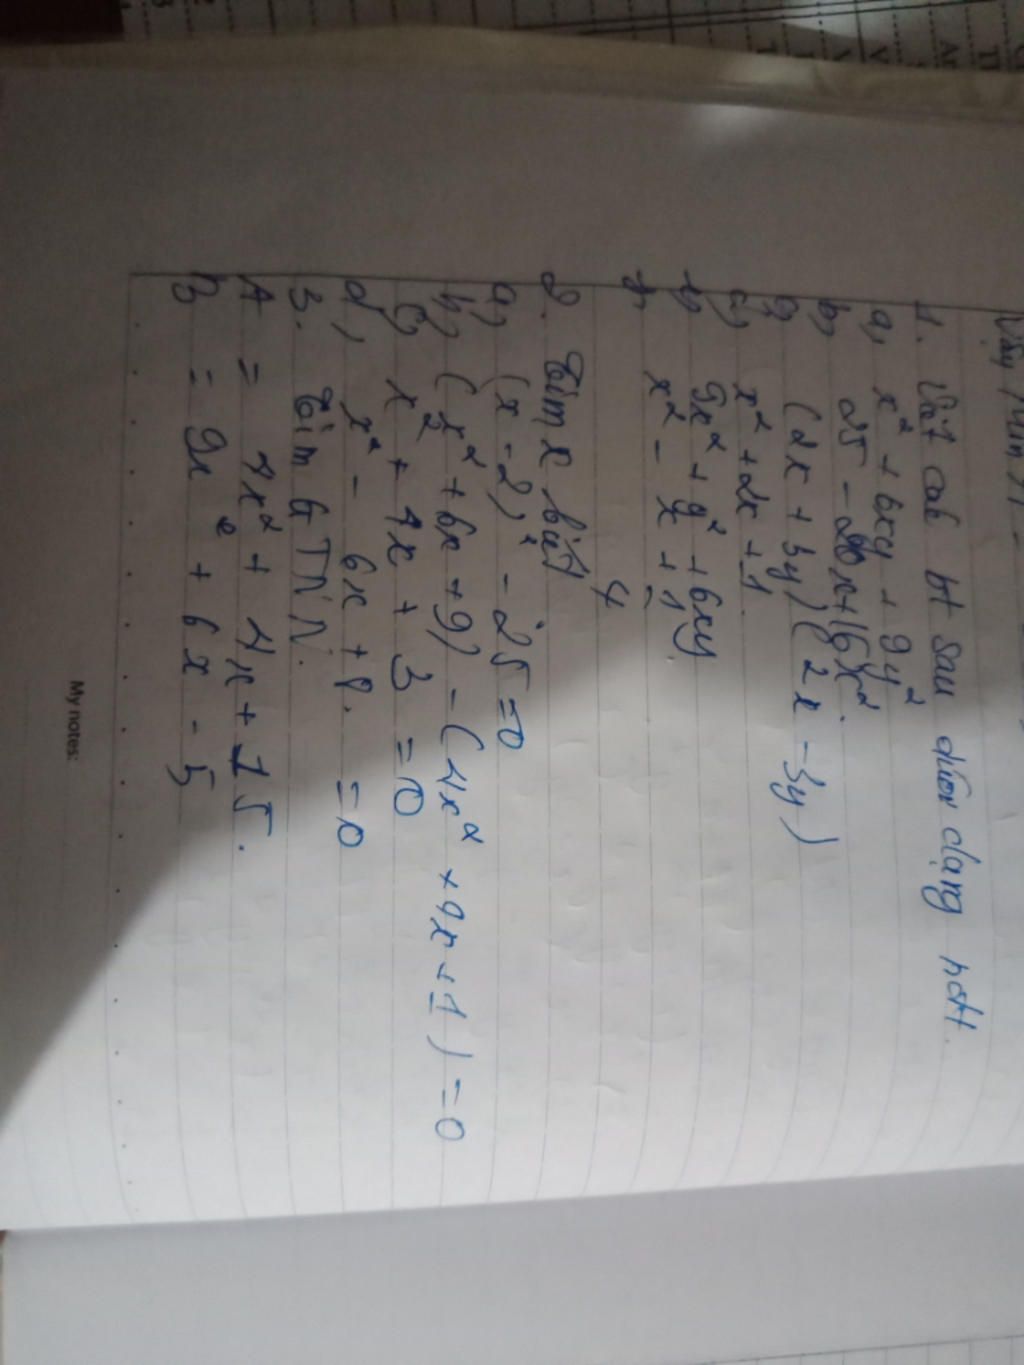 1. Viết các bt sau dưới dạng hđtt.
a, x² + 6xy + 9y²
b, 25 - 20x + 16x².
c, (2x + 3y)(2x - 3y)
d, x² + 2x + 1
e, 9x² + y² + 6xy
f, x² - x + 1
4
2. Tìm x biết
a, (x - 2)² - 25 = 0
b, (x² + 6x + 9) - (4x² + 4x + 1) = 0
c, x² + 4x + 3 = 0
d, x² - 6x + 8. = 0
3. Tìm GTNN.
A = 4x² + 4x + 15.
B = 9x² + 6x - 5
My notes: